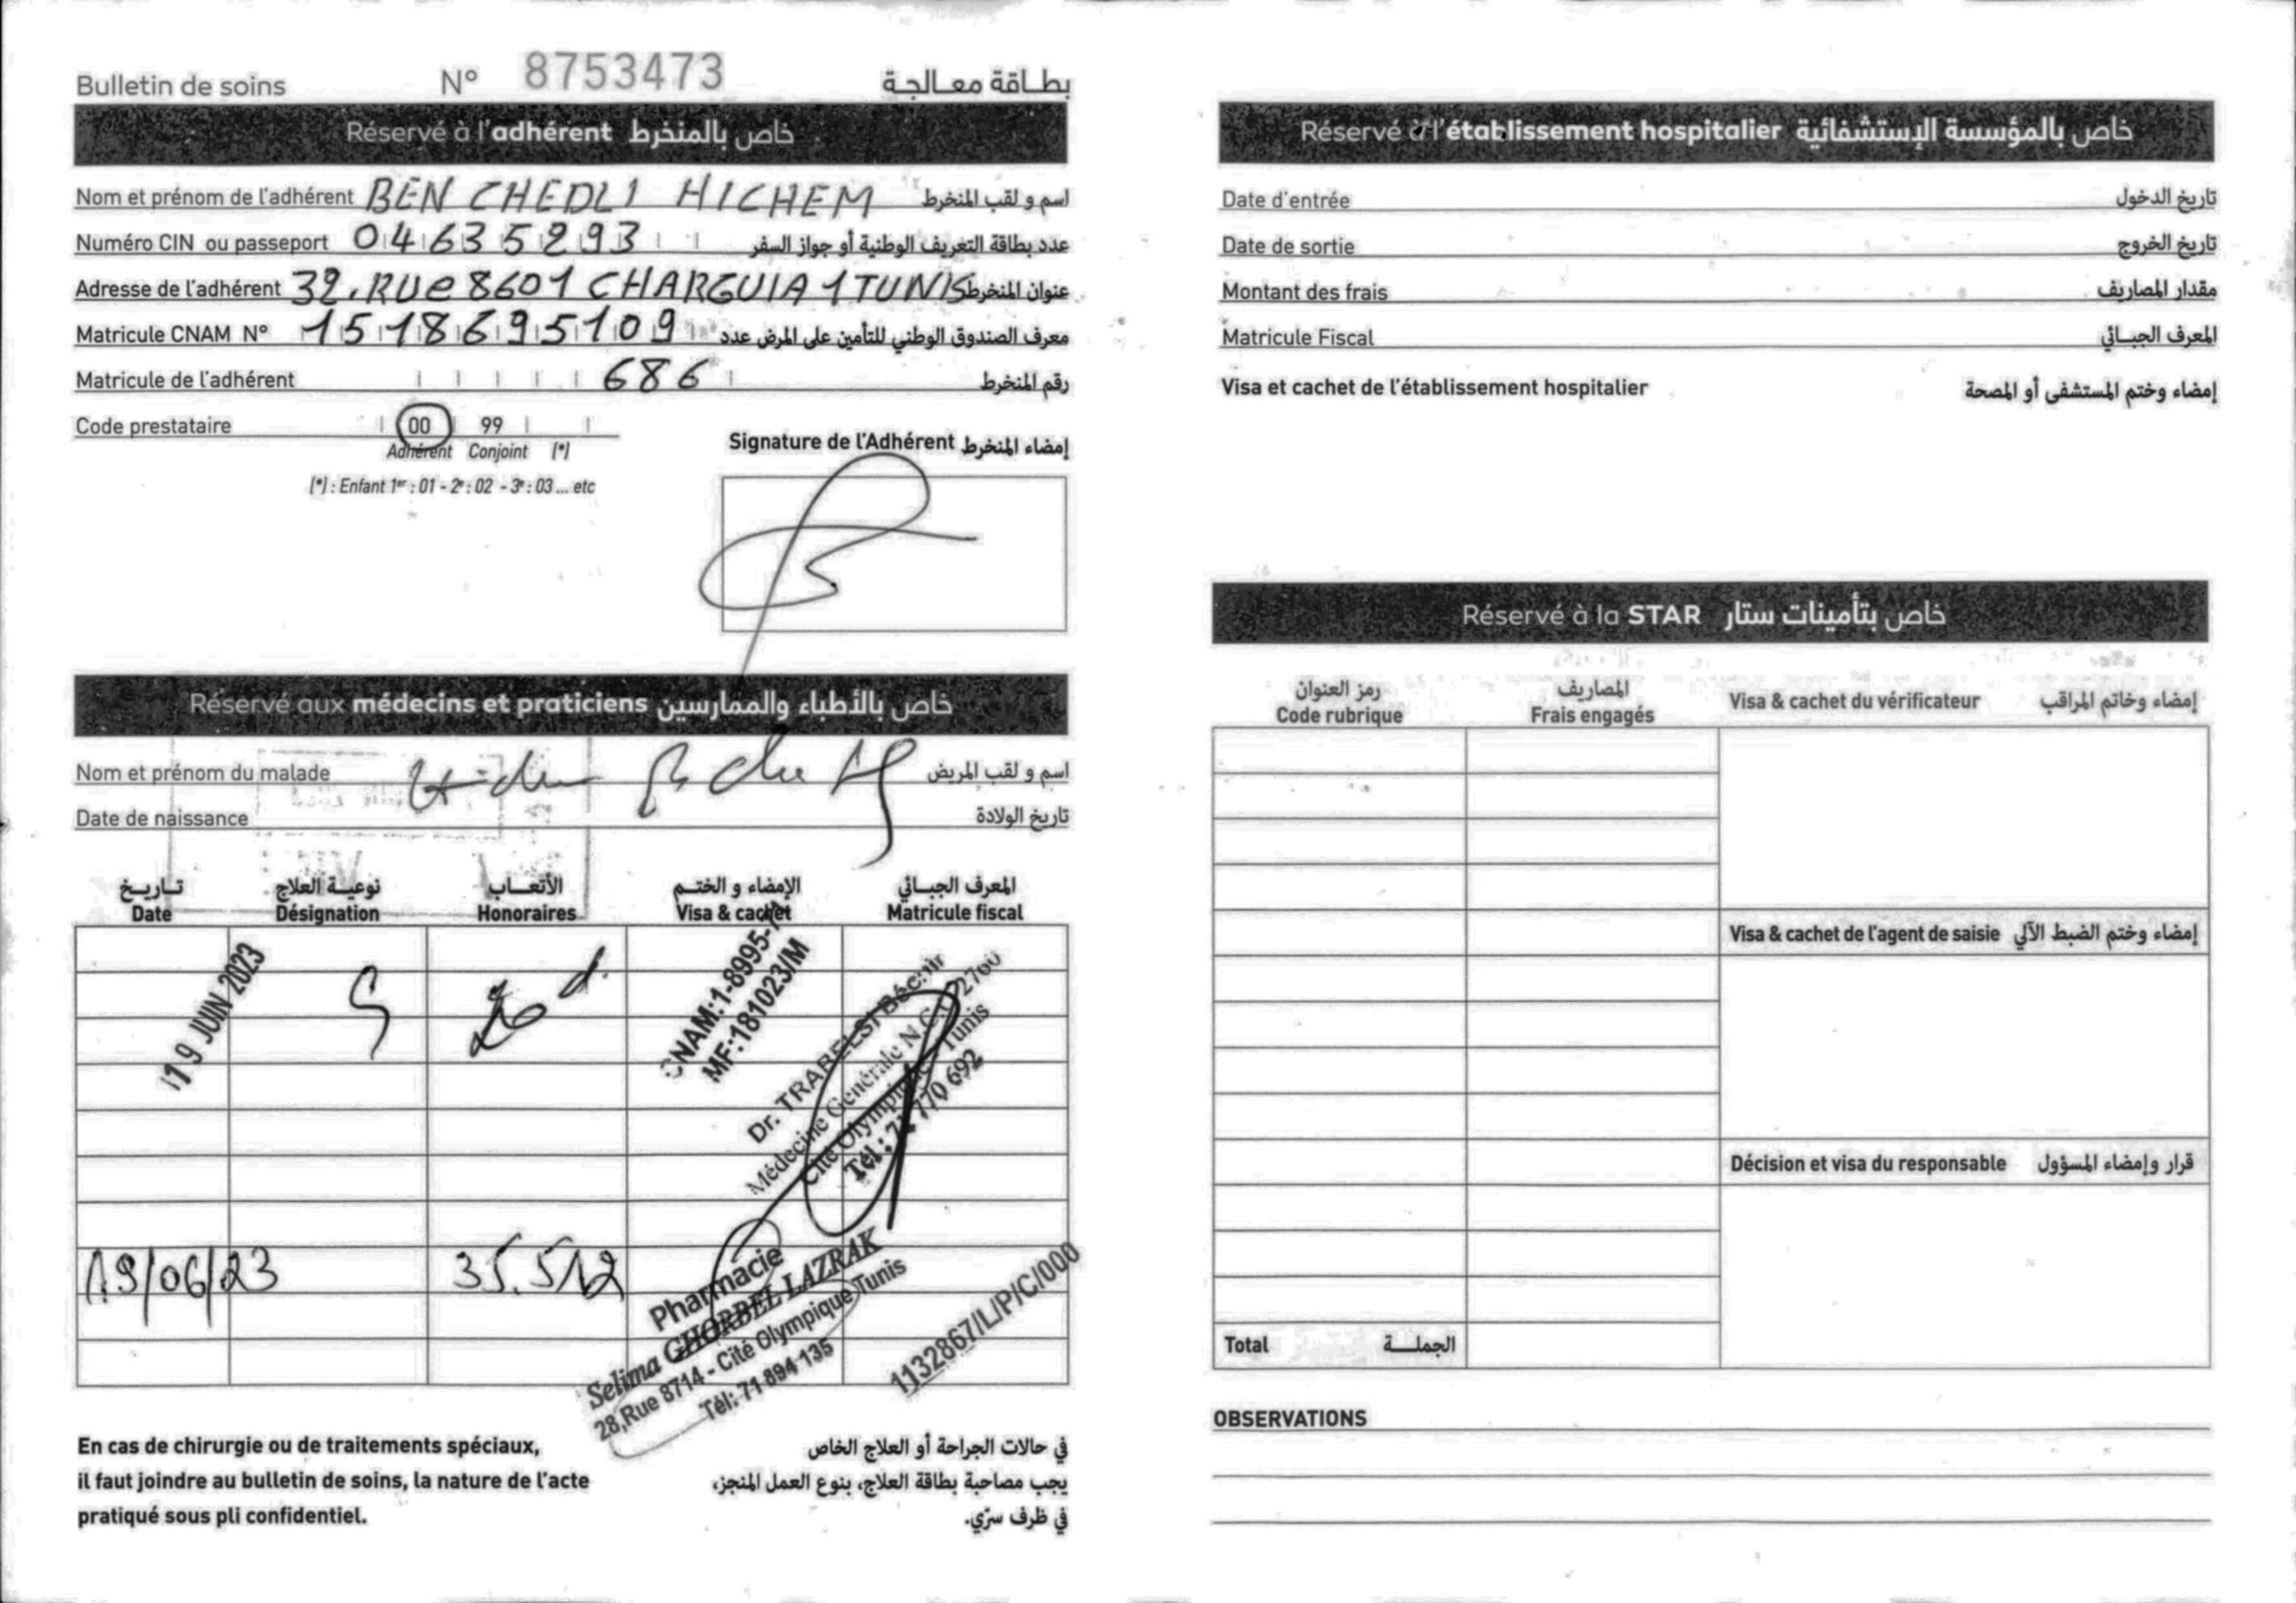 Bulletin de soins N° 8753473 بطاقة معالجة
Réservé à l'adhérent خاص بالمنخرط
Nom et prénom de l'adhérent BEN CHEDLI HICHEM اسم و لقب المنخرط
Numéro CIN ou passeport 04635293 عدد بطاقة التعريف الوطنية أو جواز السفر
Adresse de l'adhérent 32, RUE 8601 CHARGUIA 1 TUNIS عنوان المنخرط
Matricule CNAM N° 1518695109 معرف الصندوق الوطني للتأمين على المرض عدد
Matricule de l'adhérent 686 رقم المنخرط
Code prestataire 00 99
Adhérent Conjoint (*)
(*) : Enfant 1er : 01 - 2e : 02 - 3e : 03 ... etc
Signature de l'Adhérent إمضاء المنخرط
Réservé aux médecins et praticiens خاص بالأطباء والممارسين
Nom et prénom du malade اسم و لقب المريض
Date de naissance تاريخ الولادة
تاريخ نوعية العلاج الأتعاب الإمضاء و الختم المعرف الجبائي
Date Désignation Honoraires Visa & cachet Matricule fiscal
19 JUIN 2023
CNAM:1-8995-
MF:181023/M
Dr. TRABELSI Béchir
Médecine Générale N.C.
Cité Olympique Tunis
Tél.: 71 770 692
19/06/23 35.512
Pharmacie
Selima GHORBEL LAZRAK
28,Rue 8714 - Cité Olympique Tunis
Tél: 71 894 135
1132867/L/P/C/000
En cas de chirurgie ou de traitements spéciaux,
il faut joindre au bulletin de soins, la nature de l'acte
pratiqué sous pli confidentiel.
في حالات الجراحة أو العلاج الخاص
يجب مصاحبة بطاقة العلاج، بنوع العمل المنجز،
في ظرف سرّي.
Réservé à l'établissement hospitalier خاص بالمؤسسة الإستشفائية
Date d'entrée تاريخ الدخول
Date de sortie تاريخ الخروج
Montant des frais مقدار المصاريف
Matricule Fiscal المعرف الجبائي
Visa et cachet de l'établissement hospitalier إمضاء وختم المستشفى أو المصحة
Réservé à la STAR خاص بتأمينات ستار
رمز العنوان المصاريف
Code rubrique Frais engagés Visa & cachet du vérificateur إمضاء وخاتم المراقب
Visa & cachet de l'agent de saisie إمضاء وختم الضبط الآلي
Décision et visa du responsable قرار وإمضاء المسؤول
Total الجملة
OBSERVATIONS